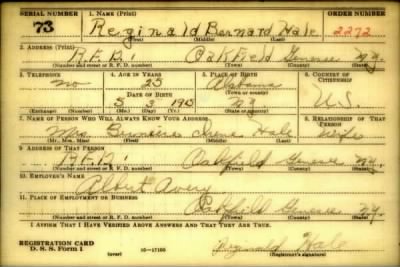 SERIAL NUMBER 1. NAME (Print) ORDER NUMBER
73 Reginald Bernard Hale 2272
(First) (Middle) (Last)
2. ADDRESS (Print)
R.F.D. 1 Oakfield Genesee N.Y.
(Number and street or R. F. D. number) (Town) (County) (State)
3. TELEPHONE 4. AGE IN YEARS 5. PLACE OF BIRTH 6. COUNTRY OF CITIZENSHIP
no 25 Alabama
DATE OF BIRTH (Town)
5 3 N.Y. U.S.
(Exchange) (Number) (Mo.) (Day) (Yr.) (State or country)
7. NAME OF PERSON WHO WILL ALWAYS KNOW YOUR ADDRESS 8. RELATIONSHIP OF THAT PERSON
Mrs. Irene Hale Wife
(Mr., Mrs., Miss) (First) (Middle) (Last)
9. ADDRESS OF THAT PERSON
R.F.D. 1 Oakfield Genesee N.Y.
(Number and street or R. F. D. number) (Town) (County) (State)
10. EMPLOYER'S NAME
Albert Avery
11. PLACE OF EMPLOYMENT OR BUSINESS
Oakfield Genesee N.Y.
(Number and street or R. F. D. number) (Town) (County) (State)
I AFFIRM THAT I HAVE VERIFIED ABOVE ANSWERS AND THAT THEY ARE TRUE.
REGISTRATION CARD
D. S. S. Form 1 (over) 16—17105 Reginald Hale
(Registrant's signature)